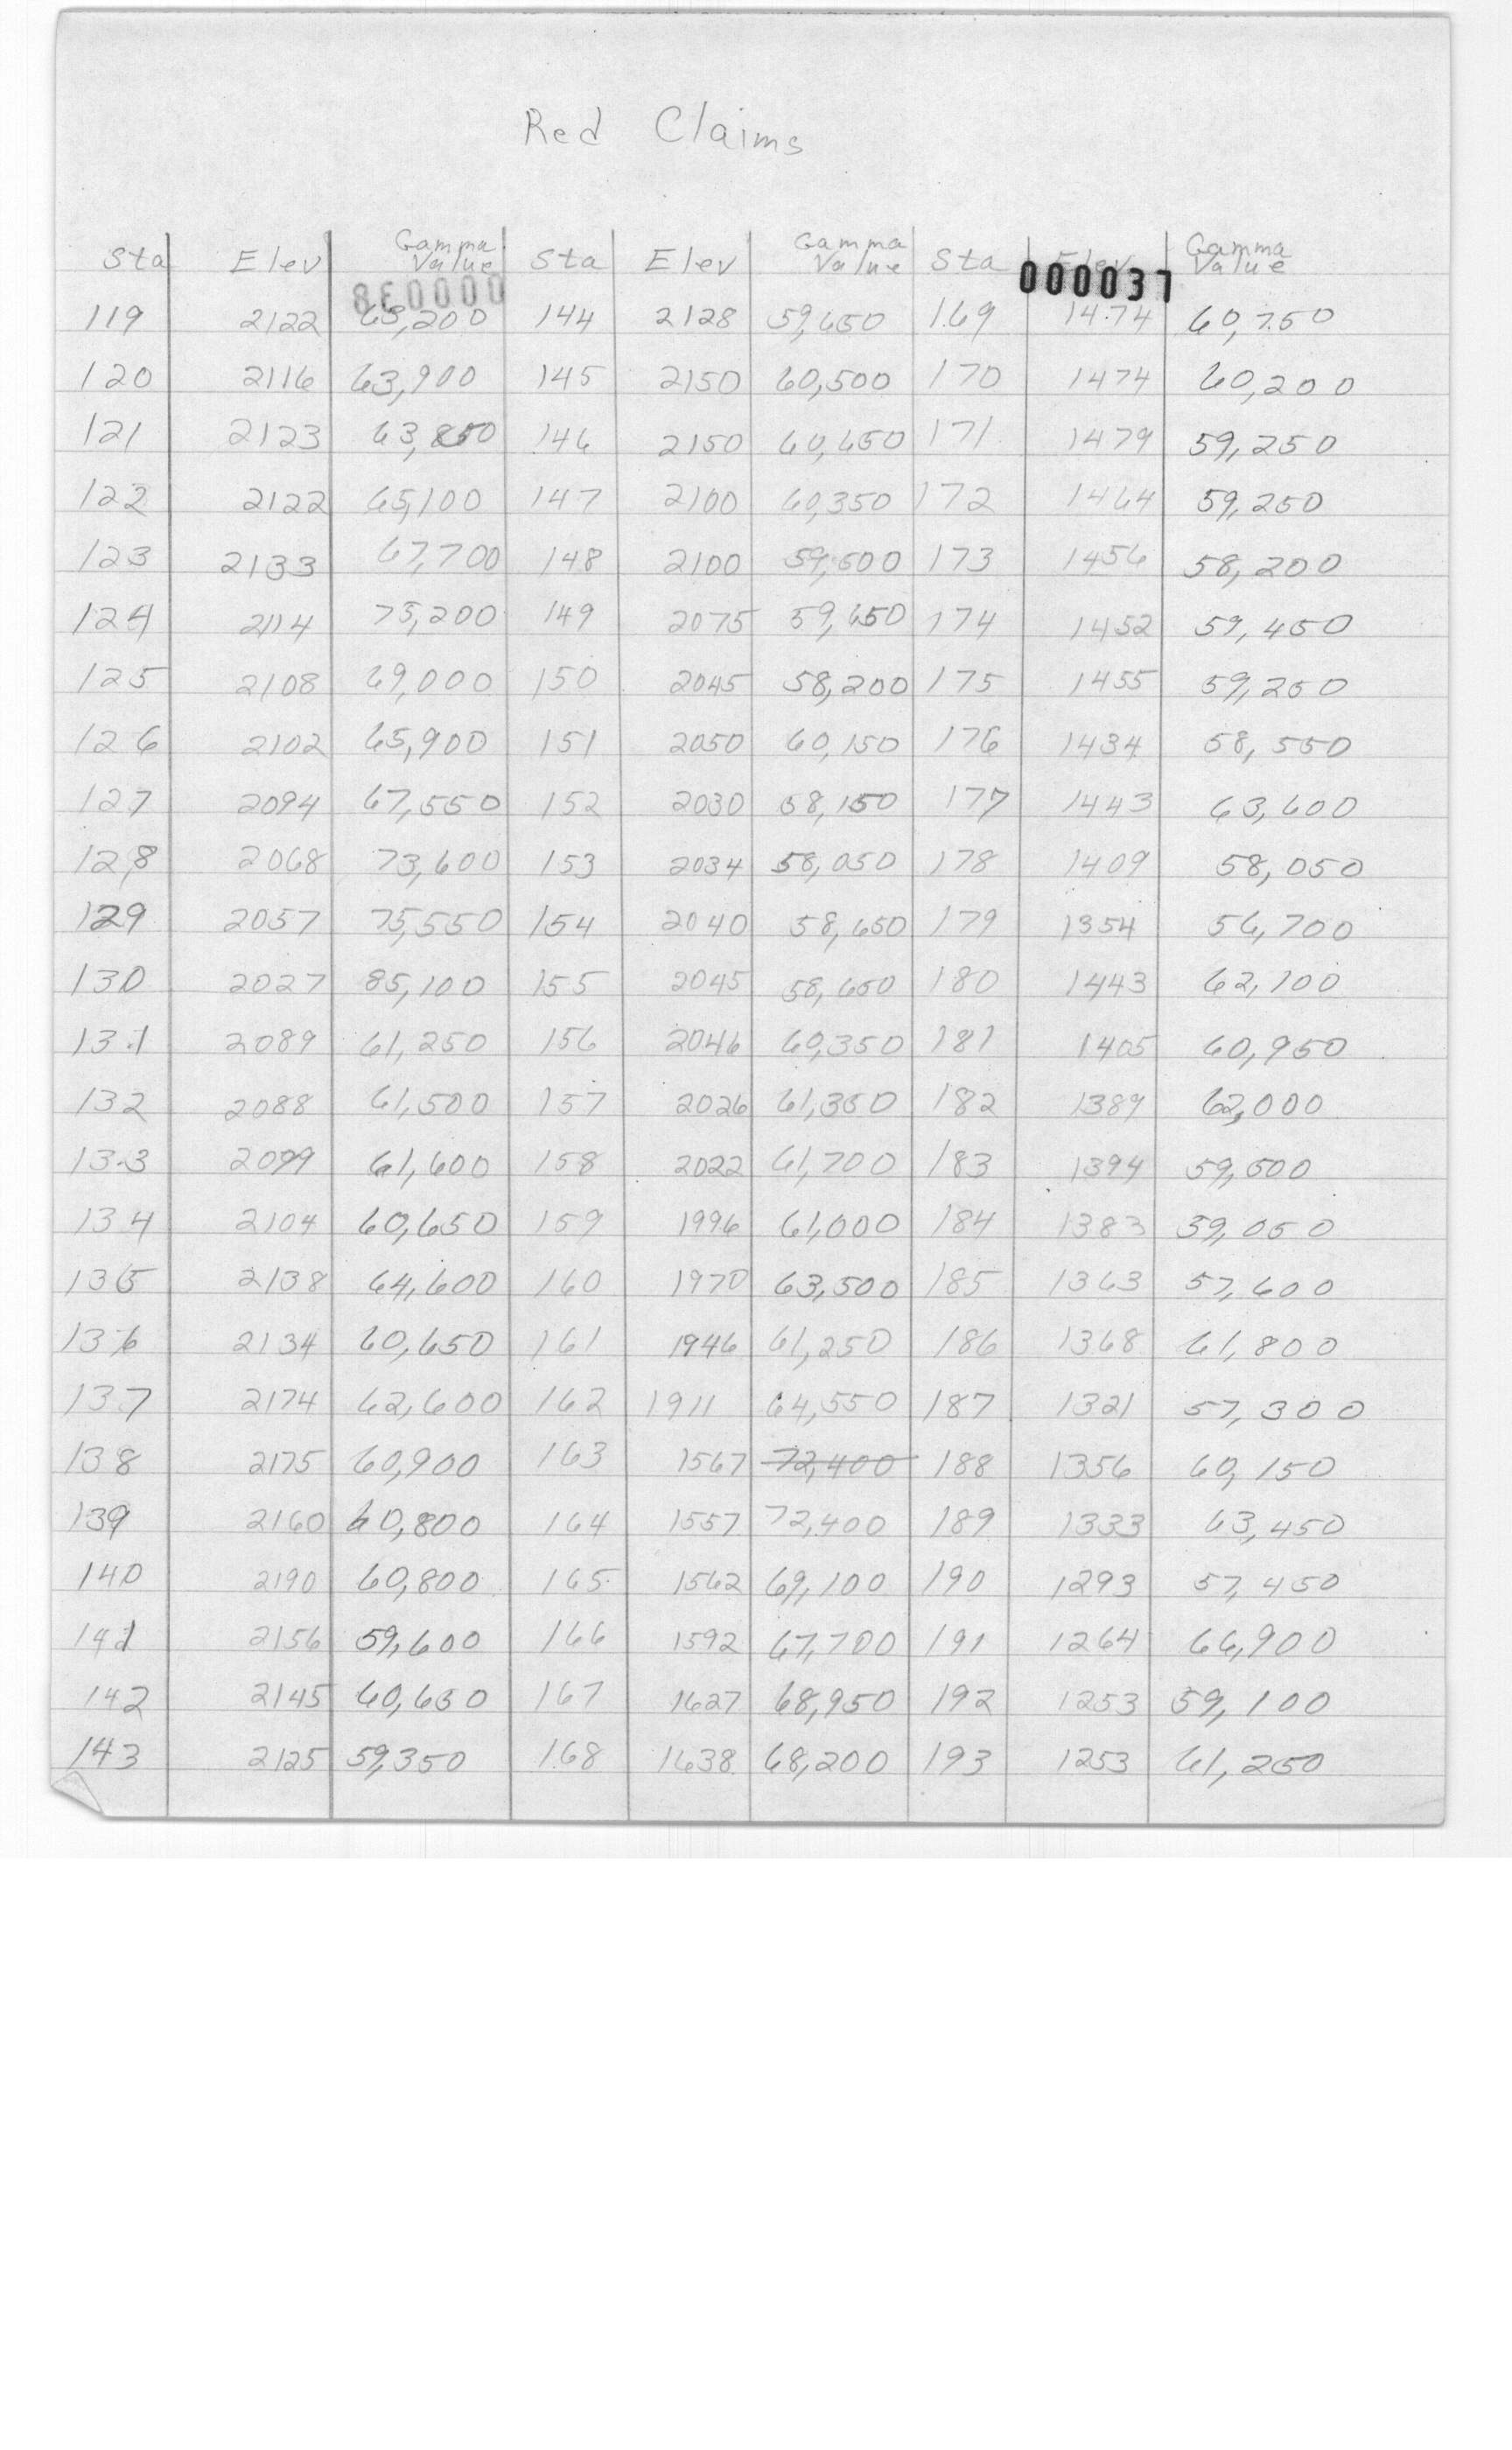 Red Claims
Sta Elev Gamma Value Sta Elev Gamma Value Sta Elev Gamma Value
000038 000037
119 2122 63,200 144 2128 59,650 169 1474 60,750
120 2116 63,900 145 2150 60,500 170 1474 60,200
121 2123 63,850 146 2150 60,650 171 1479 59,250
122 2122 65,100 147 2100 60,350 172 1464 59,250
123 2133 67,700 148 2100 59,500 173 1456 58,200
124 2114 75,200 149 2075 59,650 174 1452 59,450
125 2108 69,000 150 2045 58,200 175 1455 59,250
126 2102 65,900 151 2050 60,150 176 1434 58,550
127 2094 67,550 152 2030 58,150 177 1443 63,600
128 2068 73,600 153 2034 58,050 178 1409 58,050
129 2057 75,550 154 2040 58,650 179 1354 56,700
130 2027 85,100 155 2045 58,650 180 1443 62,100
131 2089 61,250 156 2046 60,350 181 1405 60,950
132 2088 61,500 157 2026 61,350 182 1389 62,000
133 2099 61,600 158 2022 61,700 183 1394 59,500
134 2104 60,650 159 1996 61,000 184 1383 59,050
135 2138 64,600 160 1970 63,500 185 1363 57,600
136 2134 60,650 161 1946 61,250 186 1368 61,800
137 2174 62,600 162 1911 64,550 187 1321 57,300
138 2175 60,900 163 1567 72,400 188 1356 60,150
139 2160 60,800 164 1557 72,400 189 1333 63,450
140 2190 60,800 165 1562 69,100 190 1293 57,450
141 2156 59,600 166 1592 67,700 191 1264 66,900
142 2145 60,650 167 1627 68,950 192 1253 59,100
143 2125 59,350 168 1638 68,200 193 1253 61,250